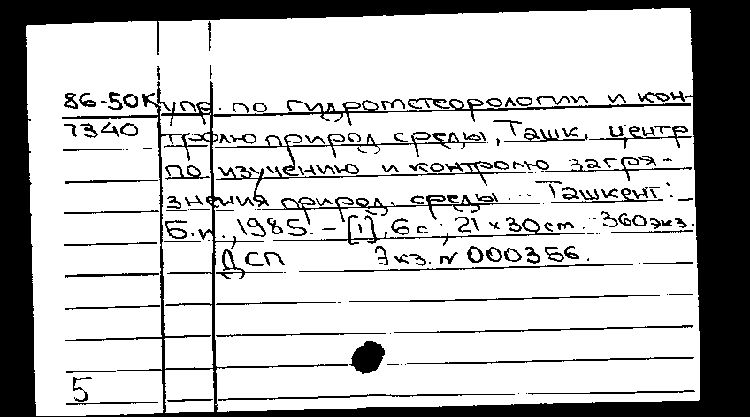 86-50К упр. по гидрометеорологии и кон-
7340 тролю природ. среды, Ташк. центр
по изучению и контролю загря-
знения природ. среды... Ташкент:
Б.и., 1985. - [1], 6 с.; 21 x 30 cm. 360 экз.
ДСП Экз. N 000356.
5